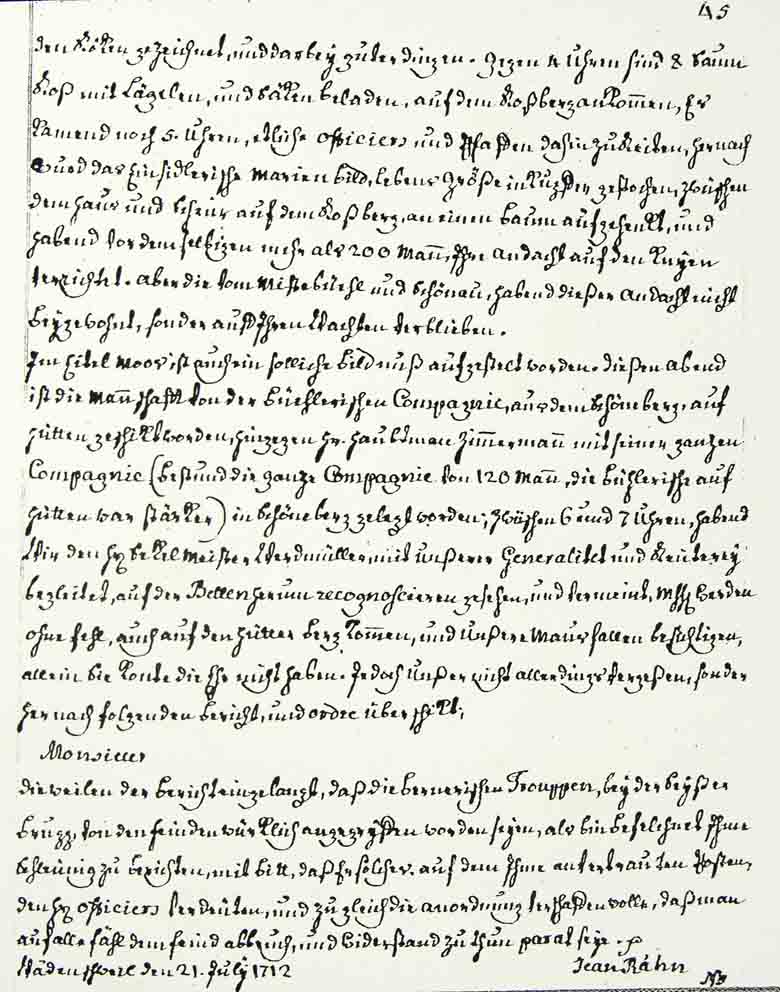 45
den Röken gezeichnet, und darbey zuverdingen. Gegen 4 Uhren sind 8 Saum
Roß mit Lägelen, und Säken beladen, auf dem Roßberg ankommen, Es
kamend noch 5. Uhren, etliche Officiers und Pfaffen dahin zu Reiten, hernach
wurd das Einsidlerische Marien bild, lebens Größe in Kupffer gestochen, zwüschen
dem Haus und Scheür auf dem Roßberg, an einen baum aufgehenkt, und
habend vor demselbigen mehr als 200 Mañ, Ihre Andacht auf den Knyen
verrichtet. Aber die vom Mistebüehl und Schönau, habend dießer Andacht nicht
beygewohnt, sonder auff Ihren Wachten verblieben.
Im Itel Moos ist auch ein solliche bildnuß aufgestelt worden. dießen abend
ist die Mañschafft von der Büehlerischen Compagnie, aus dem Schöneberg, auf
Hütten geschikt worden, hingegen Hr. Haubtman Zimmermañ mit seiner ganzen
Compagnie (bestund die ganze Compagnie von 120 Mañ, die bühlerische auf
Hütten war stärker) in Schöneberg gelegt worden; zwüschen 6 und 7 Uhren, habend
Wir den Hr. Sekelmeister Werdmüller, mit unßerer Generalitet und Reuterey
begleitet, auf der Bellen herum recognoscieren gesehen, und vermeint, werden
ohne fehl, auch auf den Hütter berg kommen, und unßere Mausfallen besichtigen,
allein Sie konte die Ehr nicht haben. Jedoch unßer nicht allerdings vergeßen, sonder
hernach folgenden bericht, und ordre überschikt;
Monsieur
dieweilen der bericht eingelangt, daß die bernerischen Trouppen, bey der
brugg, von den feinden würklich angegryffen worden seyen, als bin befelchnet Ihme
Schleünig zu berichten, mit bitt, daß Er solches. auf dem Ihme antertrauten Posten,
den Hr. Officiers verdeüten, und zugleich die anordnung verschaffen wolle, daß man
auf alle fähl dem feind abbruch, und widerstand zu thun parat seye.
Wädenschweil den 21. July 1712
Jean Rahn